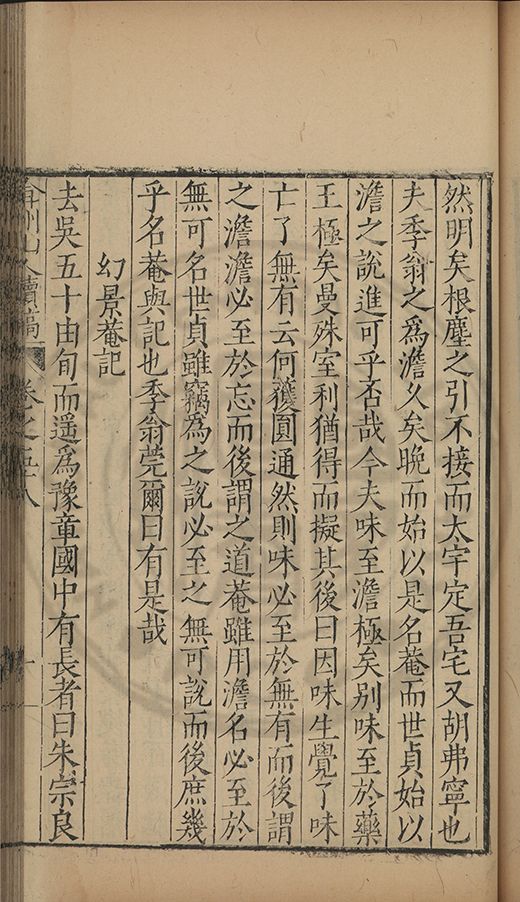 然明矣根塵之引不接而太宇定吾宅又胡弗寧也
夫季翁之為澹久矣晚而始以是名菴而世貞始以
澹之說進可乎否哉今夫味至澹極矣別味至於藥
王極矣曼殊室利猶得而擬其後曰因味生覺了味
亡了無有云何獲圓通然則味必至於無有而後謂
之澹澹必至於忘而後謂之道菴雖用澹名必至於
無可名世貞雖竊為之說必至之無可說而後庶幾
乎名菴與記也季翁莞爾曰有是哉
幻景菴記
去吳五十由旬而遥為豫章國中有長者曰朱宗良
弇州山人續稿
卷之五十八